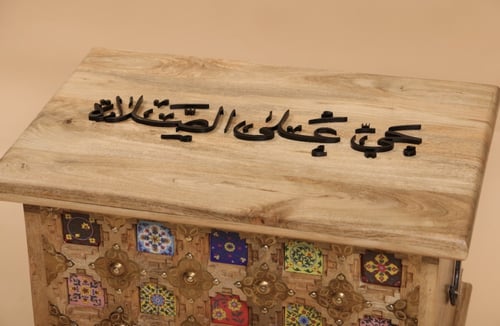 حي على الصلاة